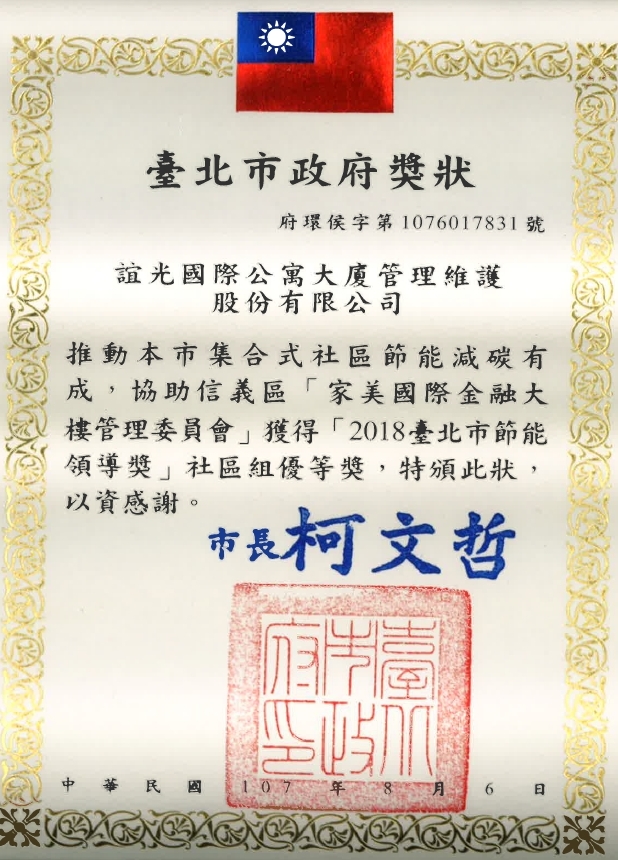 臺北市政府獎狀
府環侯字第1076017831號
誼光國際公寓大廈管理維護
股份有限公司
推動本市集合式社區節能減碳有
成，協助信義區「家美國際金融大
樓管理委員會」獲得「2018臺北市節能
領導獎」社區組優等獎，特頒此狀，
以資感謝。
市長 柯文哲
臺北市政府印
中華民國107年8月6日